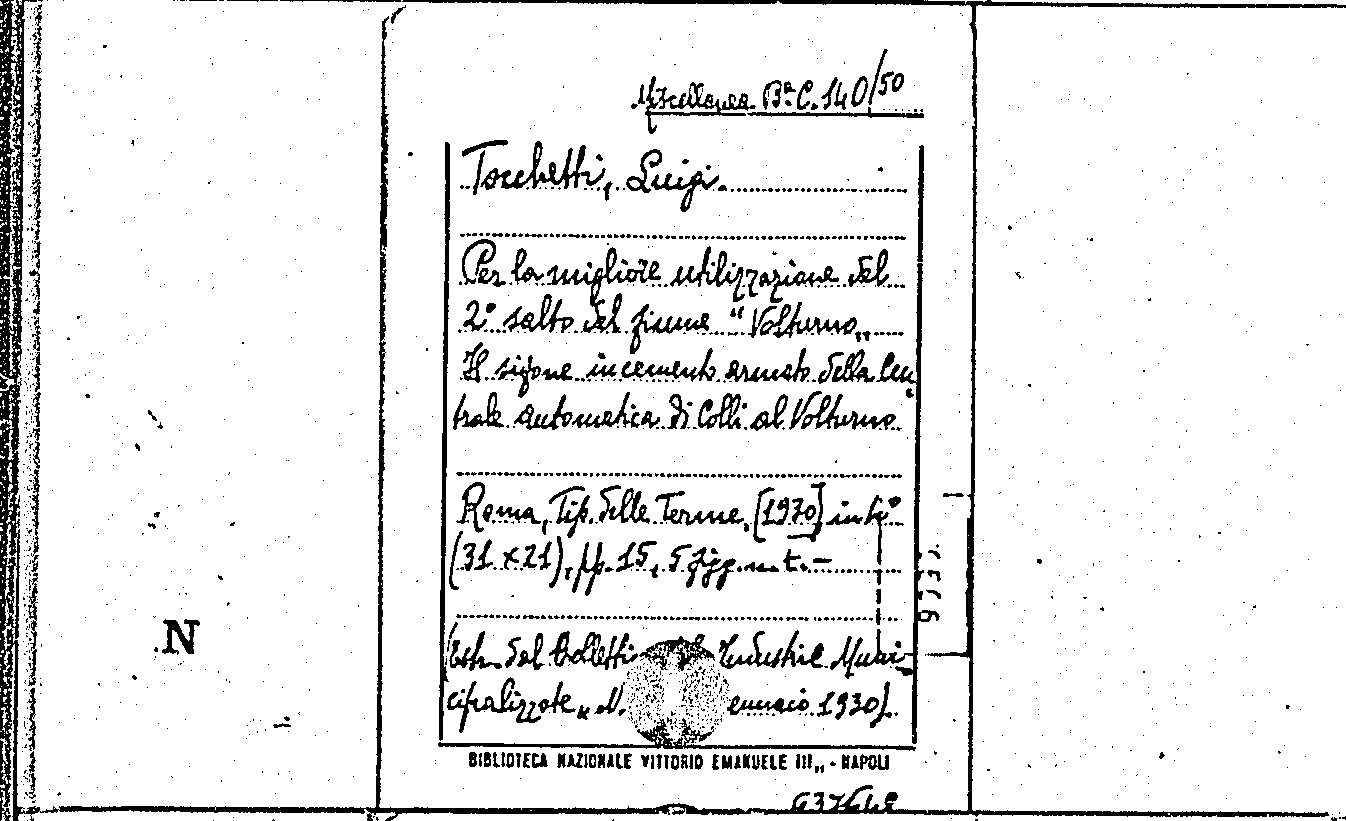 Miscellanea Bª C. 140/50
Tocchetti, Luigi.
Per la migliore utilizzazione del
2° salto del fiume "Volturno"
Il sifone in cemento armato della Cen
trale automatica di Colli al Volturno
Roma, Tip. delle Terme, [1930] in f°
(31 x 21), pp. 15, 5 figg. n. t. —
(Estr. dal Bolletti Industrie Muni
cipalizzate„ N. ennaio 1930).
N
BIBLIOTECA NAZIONALE VITTORIO EMANUELE III„ - NAPOLI